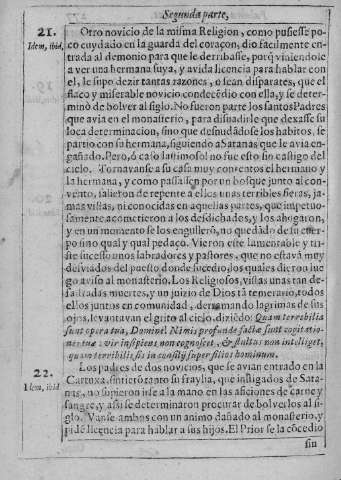 Segunda parte,
21. Otro novicio de la misma Religion, como pusiesse po-
Idem, ibid, co cuydado en la guarda del coraçon, dio facilmente en-
trada al demonio para que le derribasse, porq̃ viniendole
a ver una hermana suya, y avida licencia para hablar con
el, le supo dezir tantas razones, o sean disparates, que el
flaco y miserable novicio condecedio con ella, y se deter-
minò de bolver al siglo. No fueron parte los santos Padres
que avia en el monasterio, para disuadirle que dexasse su
loca determinacion, sino que desnudãdose los habitos, se
partio con su hermana, siguiendo a Satanas que le avia en-
gañado. Pero, ò caso lastimoso! no fue esto sin castigo del
cielo. Tornavanse a su casa muy contentos el hermano y
la hermana, y como passassen por un bosque junto al con-
vento, salieron de repente a ellos unas terribles fieras, ja-
mas vistas, ni conocidas en aquellas partes, que impetuo-
samente acometieron a los desdichados, y los ahogaron,
y en un momento se los engulleró, no quedãdo de su cuer-
po sino qual y qual pedaço. Vieron este lamentable y tri-
ste sucesso unos labradores y pastores, que no estavã muy
desviados del puesto donde sucedio, los quales dieron lue-
go aviso al monasterio. Los Religiosos, vistas unas tan de-
sastradas muertes, y un juizio de Dios tã temerario, todos
ellos juntos en comunidad, derramando lagrimas de sus
ojos, levantavan el grito al cielo, diziẽdo: Quam terribilia
sunt opera tua, Domine! Nimis profundæ factæ sunt cogitatio-
nes tuæ: vir insipiens non cognoscet, & stultus non intelliget,
quam terribilis sis in consilijs super filios hominum.
22. Los padres de dos novicios, que se avian entrado en la
Idem, ibid. Cartuxa, sintierõ tanto su fraylia, que instigados de Sata-
nas, no supieron irse a la mano en las aficiones de carne y
sangre, y assi se determinaron procurar de bolverlos al si-
glo. Vanse ambos con un animo dañado al monasterio, y
pidẽ licencia para hablar a sus hijos. El Prior se la cõcedio
sin